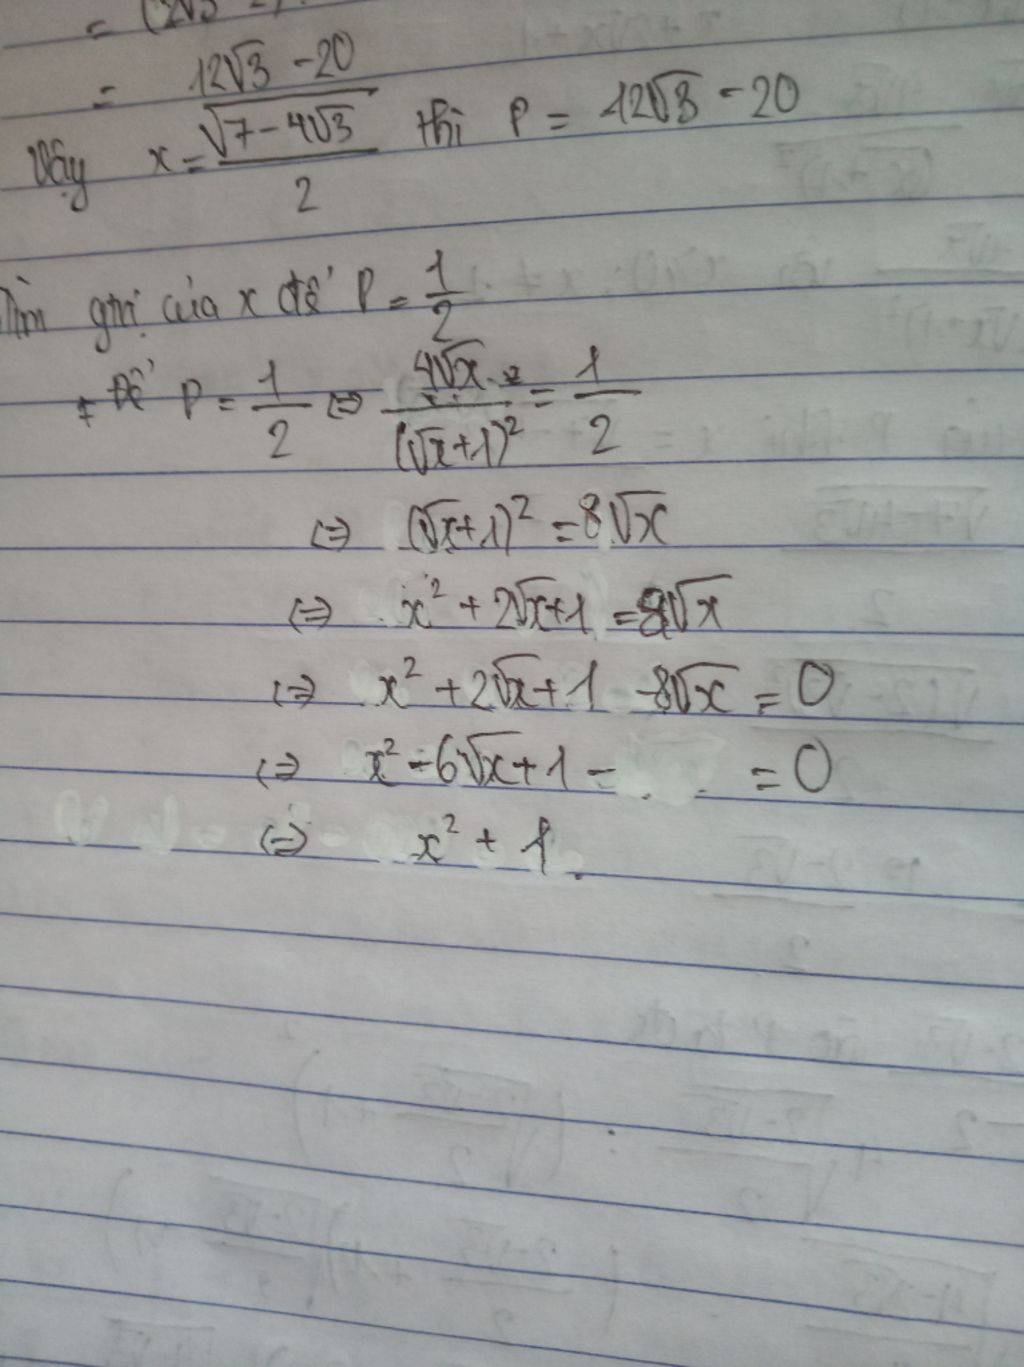 =
= 12√3 - 20
Vậy x = √7 - 4√3 / 2 thì P = 12√3 - 20
Tìm gtrị của x để P = 1/2
+ Để P = 1/2 ⇔ 4√x / (√x+1)² = 1/2
⇔ (√x+1)² = 8√x
⇔ x² + 2√x+1 = 8√x
⇔ x² + 2√x+1 -8√x = 0
⇔ x² - 6√x+1 - = 0
⇔ x² + 1.